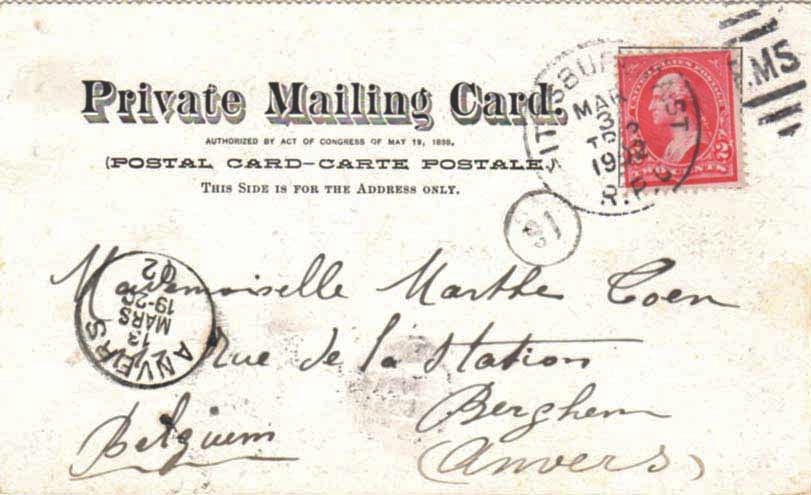 Private Mailing Card.
AUTHORIZED BY ACT OF CONGRESS OF MAY 19, 1898.
(POSTAL CARD-CARTE POSTALE.
THIS SIDE IS FOR THE ADDRESS ONLY.
MAR
3
1902
R.P.O
.MS
91
Mademoiselle Marthe Coen
Rue de la Station
Berghem
Belgium
(Anvers)
ANVERS
13
MARS
19-20
02